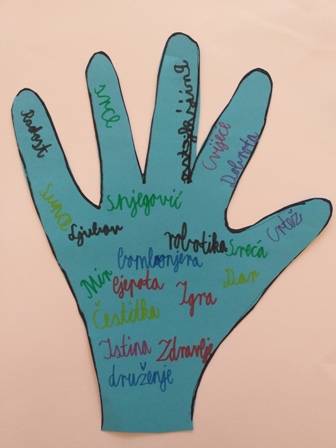 Radost
srce
Cvijeće
Dobrota
Crtež
Sunce
Ljubav
snjegović
robotika
Sreća
bombonjera
Mir
ljepota
Igra
Dar
Čestitka
Istina
Zdravlje
druženje